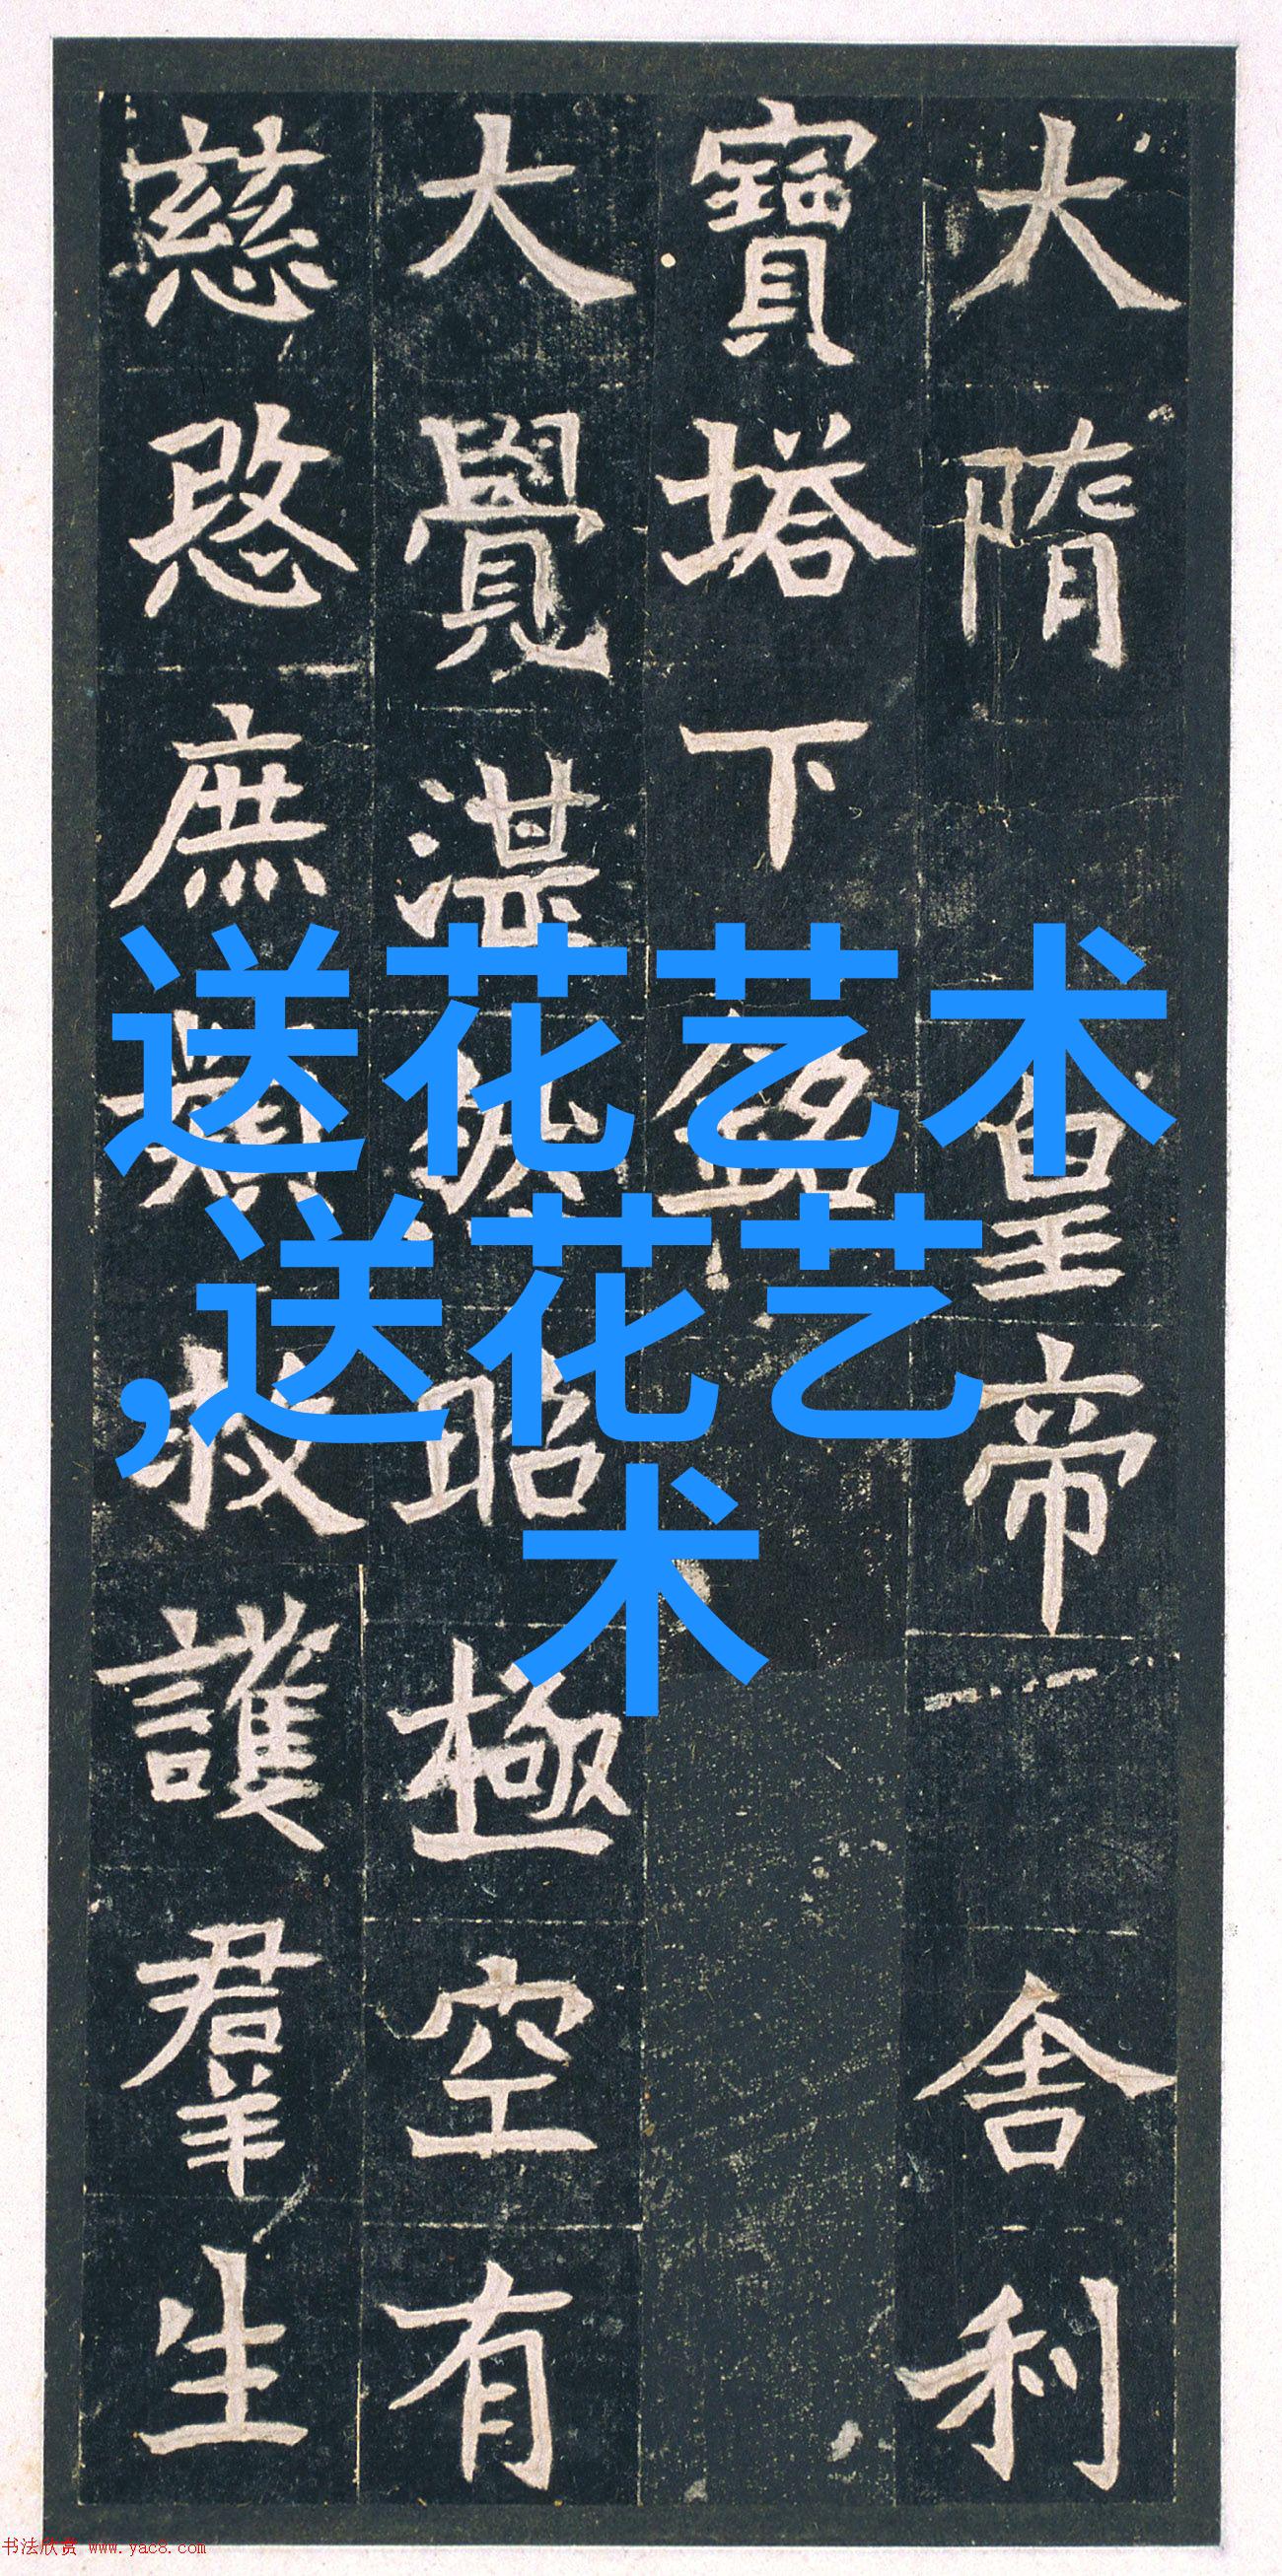 大隋皇帝舍利
寶塔下銘
大覺湛然昭極空有
慈愍庶類救護羣生
送花艺术
,送花艺
术
书法欣赏 www.yac8.com